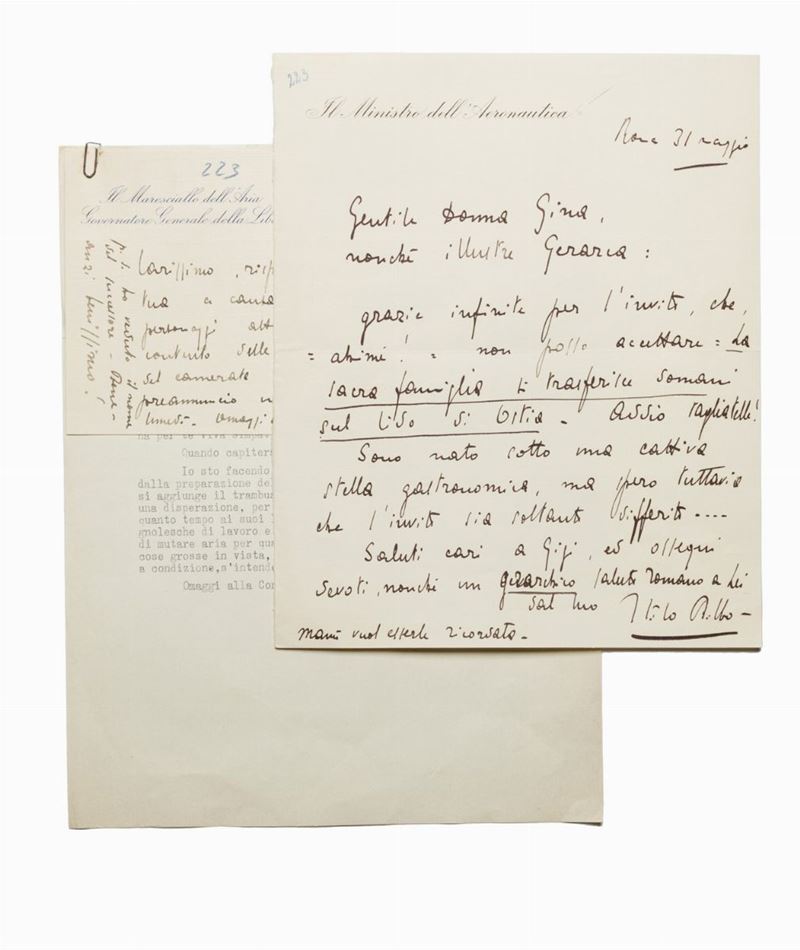 223
Il Ministro dell'Aeronautica
Roma 31 maggio
Gentile Donna Gina,
nonché illustre Gerarca:
grazie infinite per l'invito, che,
= ahimé! = non posso accettare = La
sacra famiglia si trasferisce domani
sul lido di Ostia - Addio tagliatelle!
Sono nato sotto una cattiva
stella gastronomica, ma spero tuttavia
che l'invito sia soltanto differito ----
Saluti cari a Gigi, ed ossequi
devoti, nonché un gerarchico saluto romano a Lei
dal suo Italo Balbo -
vuol esserle ricordata -
223
Il Maresciallo dell'Aria
Governatore Generale della Lib
Carissimo,
tua a causa
personaggi
contento delle
del camerata
preannuncio
lunedì - Omaggi
p.s. ho veduto il nome
del successore - Bene -
anzi benissimo!
na per te viva simpa
Quando capiter
Io sto facendo
dalla preparazione de
si aggiunge il trambu
una disperazione, per
quanto tempo ai suoi
gnolesche di lavoro e
di mutare aria per qua
cose grosse in vista,
a condizione,s'intend
Omaggi alla Con